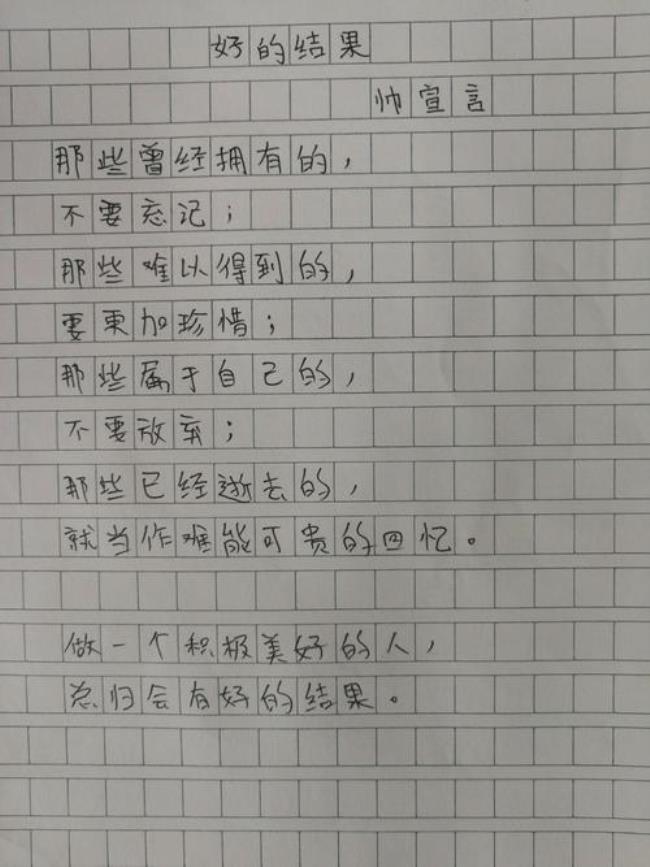 好的结果
帅宣言
那些曾经拥有的，
不要忘记；
那些难以得到的，
要更加珍惜；
那些属于自己的，
不要放弃；
那些已经逝去的，
就当作难能可贵的回忆。
做一个积极美好的人，
总归会有好的结果。